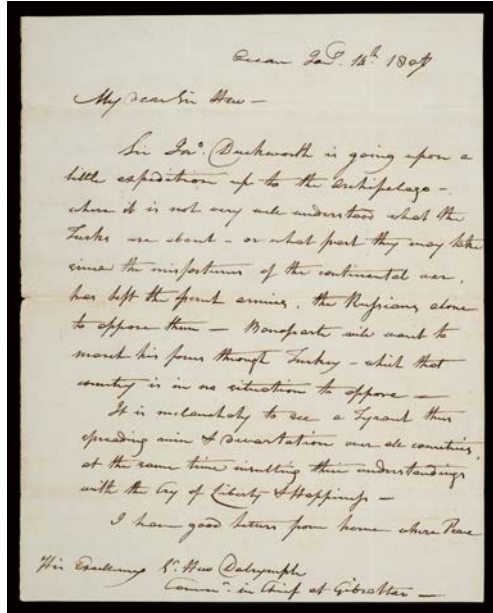 Ocean Jan. 14th 1807
My dear Sir Hew —
Sir Jno. Duckworth is going upon a
little expedition up to the Archipelago —
where it is not very well understood what the
Turks are about — or what part they may take
since the misfortunes of the continental war,
has left the french armies, the Russians alone
to oppose them — Bonaparte will want to
march his forces through Turkey — which that
country is in no situation to oppose —
It is melancholy to see a Tyrant thus
spreading ruin & devastation over all countries,
at the same time insulting their understandings
with the Cry of Liberty & Happiness —
I have good letters from home where Peace
His Excellency Sr. Hew Dalrymple
Comm. in Chief at Gibraltar —